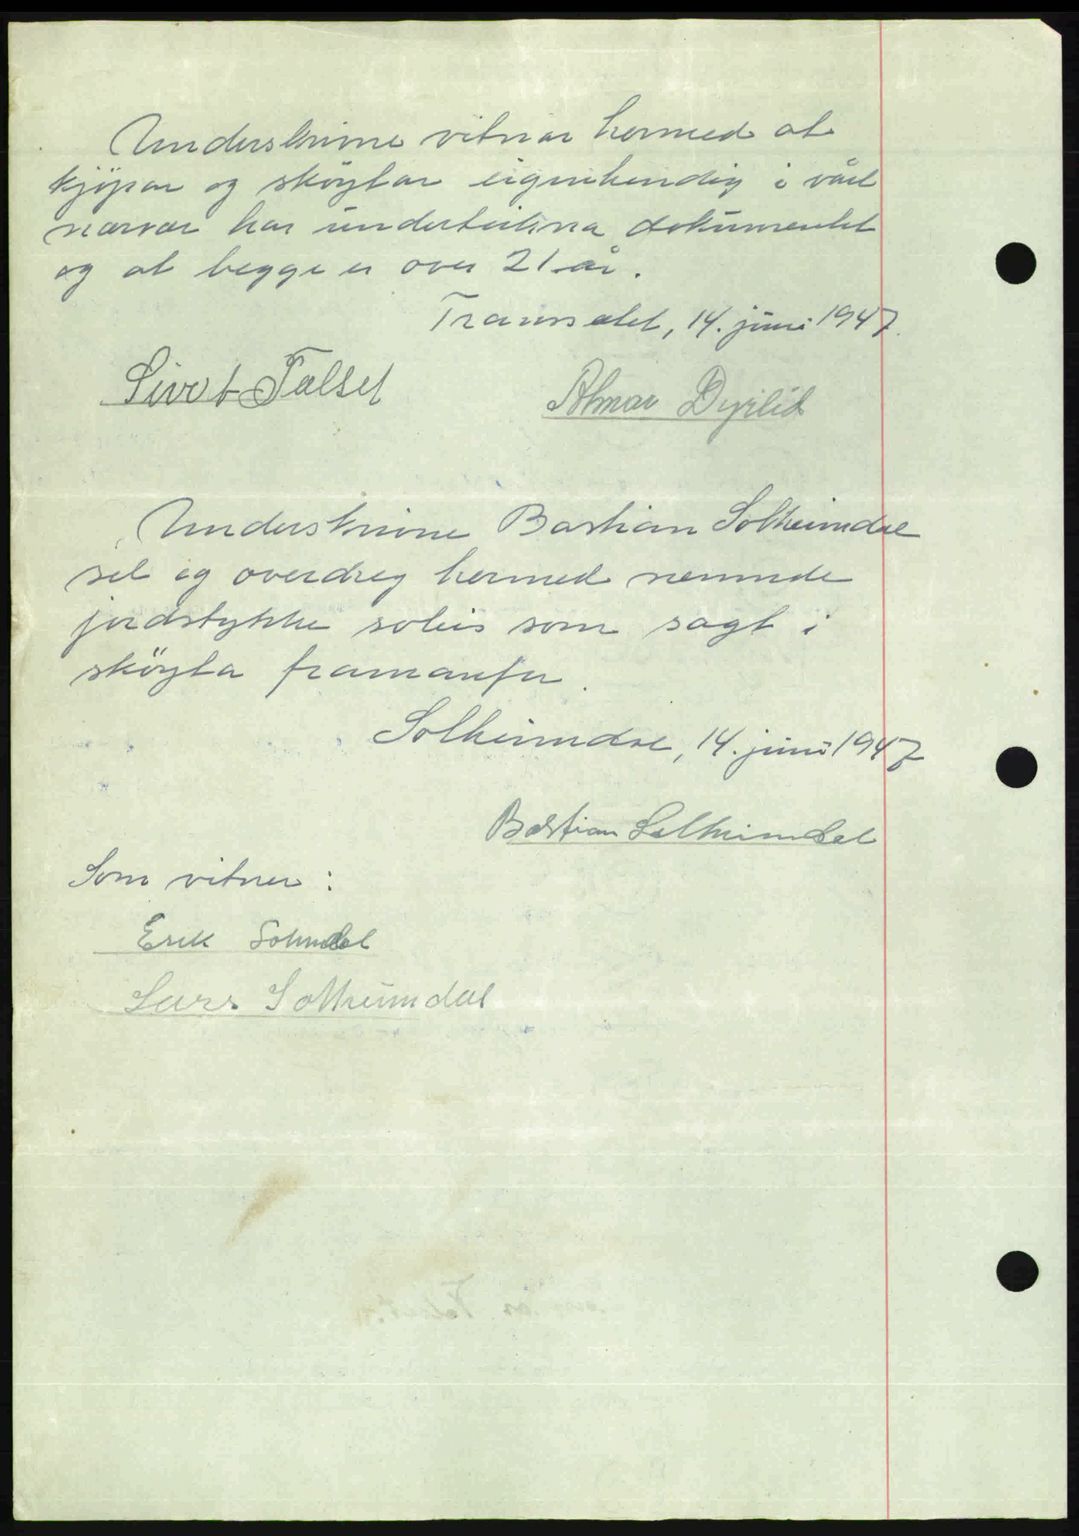 Underskrivne vitnar hermed at
kjöpar og sköytar eigenhendig i vårt
nærvær har underteikna dokumentet
og at begge er over 21 år.
14. juni 1947.
Sivert Talset
Almar Dyrlid
Underskrivne Bastian Solheimdal
sel og overdreg hermed nemnde
jordstykke soleis som sagt i
sköyta framanfor.
Solheimdal, 14. juni 1947
Bastian Solheimdal
Som vitner:
Erik
Lars Solheimdal